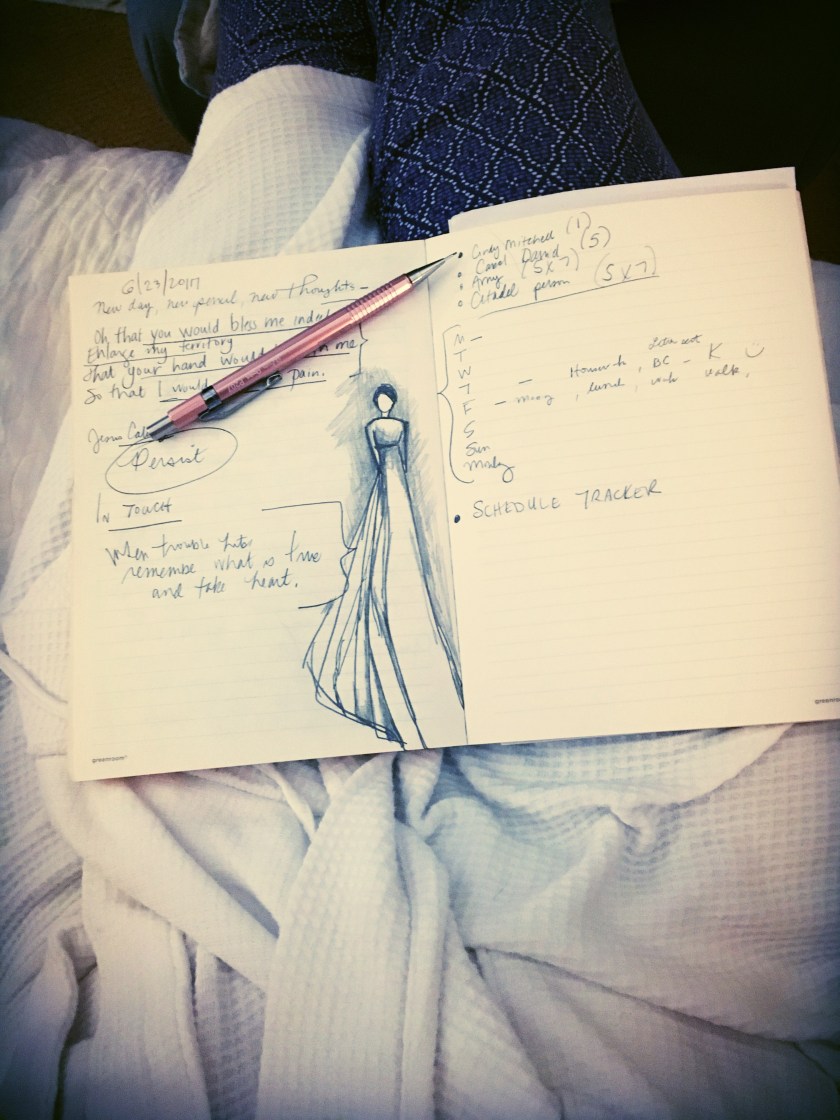 6/23/2017
New day, new pencil, new thoughts -
Oh that you would bless me
Enlarge my territory
that your hand would me
So that I would pain.
Jesus
Persist
IN TOUCH
When trouble hits
remember what is true
and take heart.
greenroom
• Cindy Mitchell (1)
• Carol David (5)
• Amy (5x7)
• Citadel person (5x7)
M -
T
W
T -
F -
S
Sun
Monday
BC - K
lunch, walk,
• SCHEDULE TRACKER
greenroom